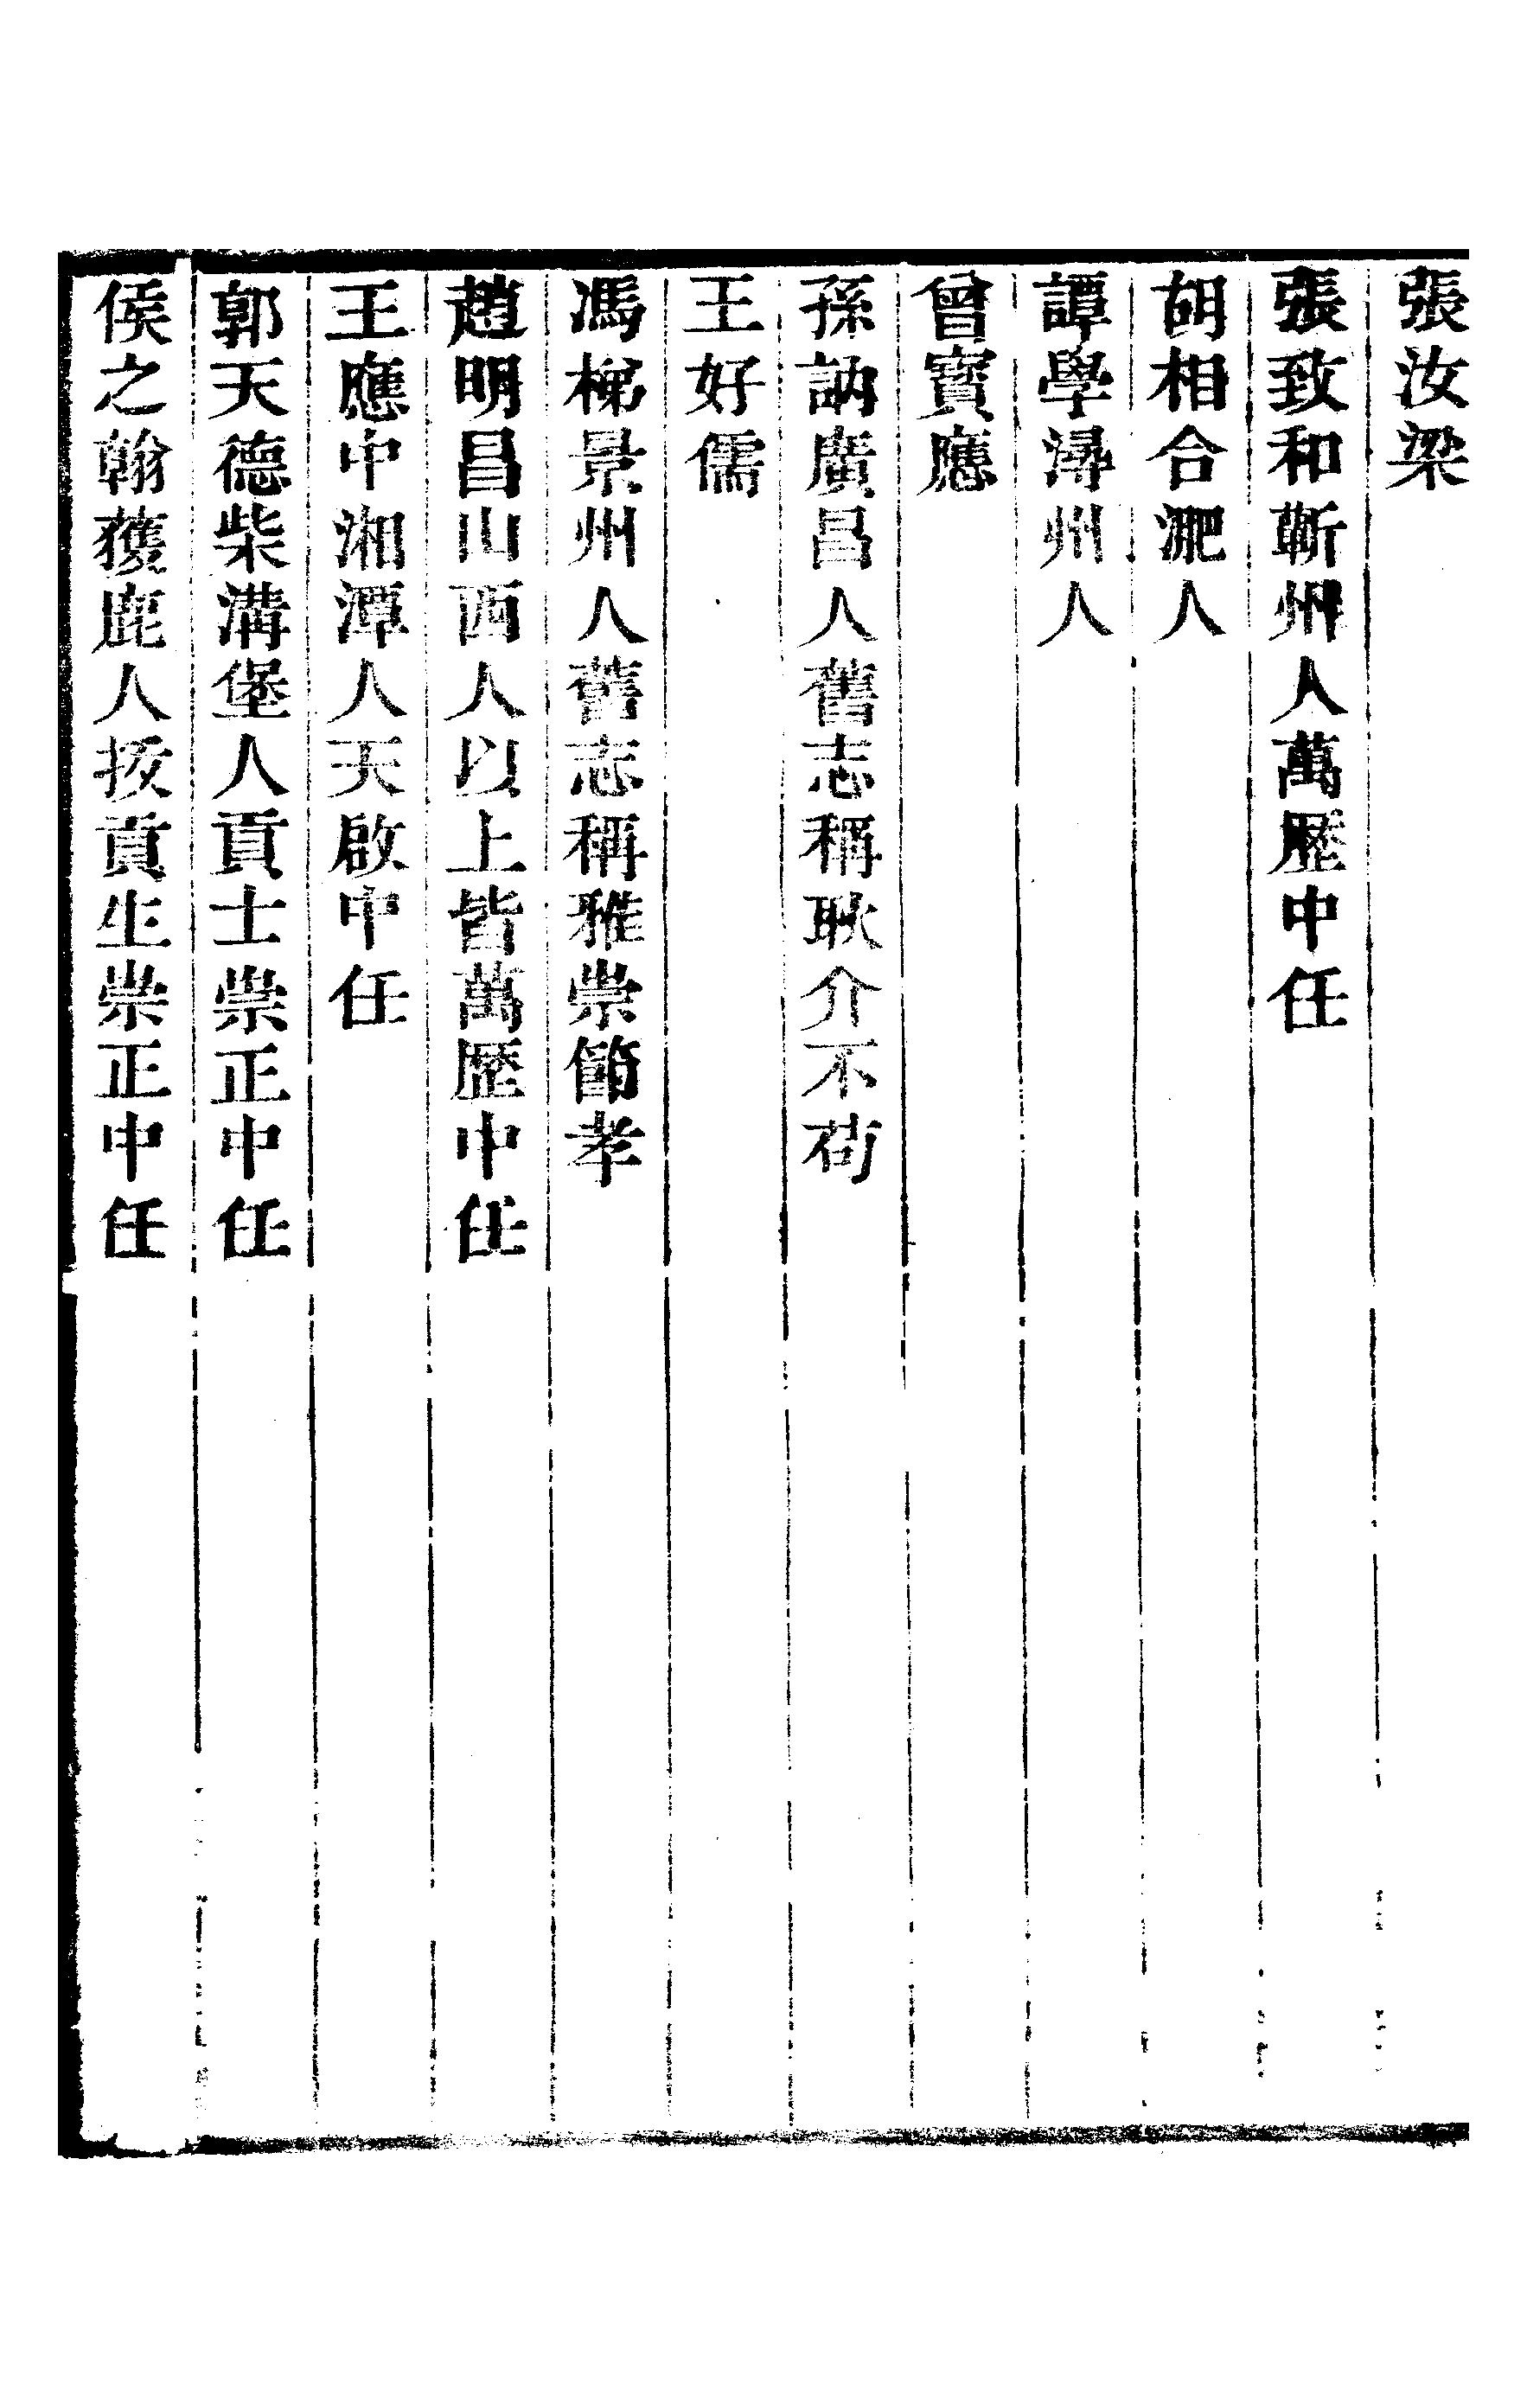 張汝梁
張致和蘄州人萬歷中任
胡相合淝人
譚學潯州人
曾寶應
孫訥廣昌人舊志稱耿介不苟
王好儒
馮梯景州人舊志稱雅崇節孝
趙明昌山西人以上皆萬歷中任
王應中湘潭人天啟中任
郭天德柴溝堡人貢士崇正中任
侯之翰獲鹿人拔貢生崇正中任